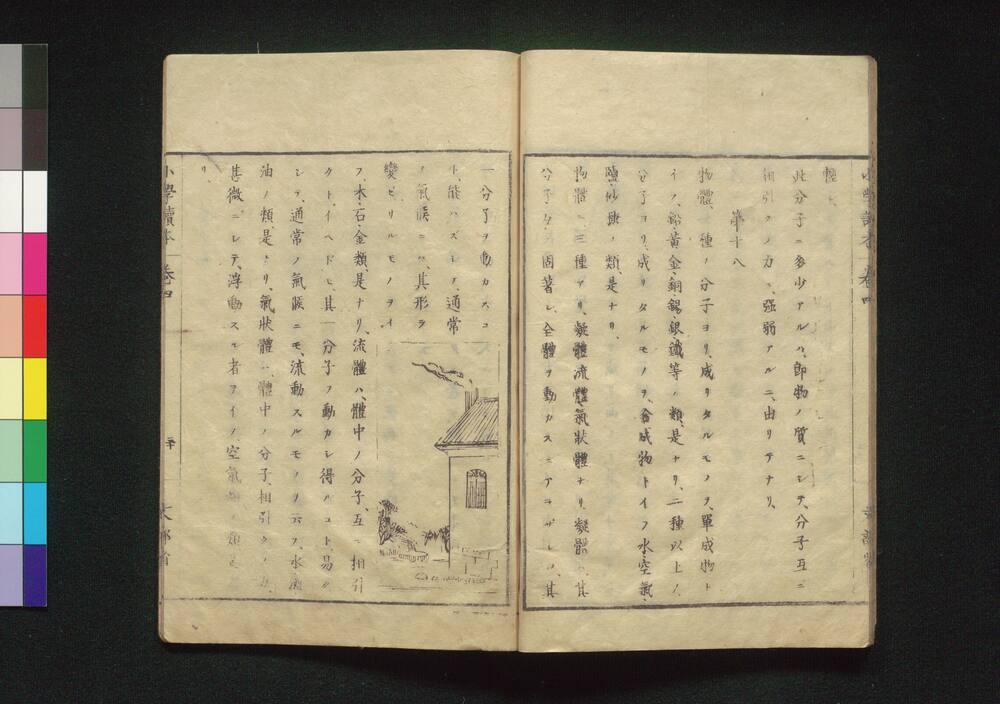 輕シ、
此分子ニ多少アルハ、即物ノ質ニシテ、分子互ニ
相引クノ力ニ、強弱アルニ、由リテナリ、
第十八
物體、一種ノ分子ヨリ、成リタルモノヲ、單成物ト
イフ、鉛、黃金、銅、錫、銀、鐵等ノ類、是ナリ、二種以上ノ
分子ヨリ、成リタルモノヲ、合成物トイフ、水、空氣、
鹽、砂糖ノ類、是ナリ、
物體ニ、三種アリ、凝體、流體、氣狀體ナリ、凝體ハ、其
分子、固著シ、全體ヲ動カスニアラザレバ、其
一分子ヲ動カスコ
ト、能ハズシテ、通常
ノ氣候ニハ、其形ヲ
變ゼザルモノヲイ
フ、木、石、金類、是ナリ、流體ハ、體中ノ分子、互ニ相引
クト、イヘドモ、其一分子ヲ動カシ得ルコト、易ク
シテ、通常ノ氣候ニモ、流動スルモノヲ云フ、水
油ノ類、是ナリ、氣狀體ハ、體中ノ分子、相引クノ力、
甚微ニシテ、浮動スル者ヲイフ、空氣
リ、
小學讀本 卷四
二十
文部省